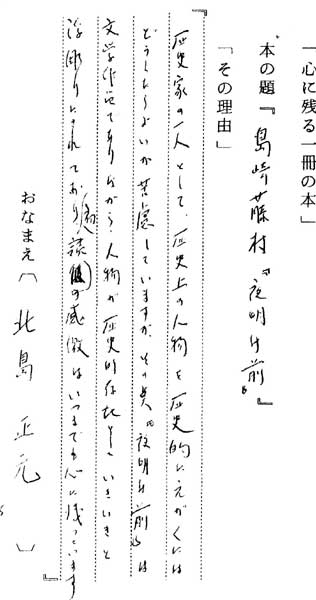 「心に残る一冊の本」
本の題『島崎藤村『夜明け前』』
「その理由」
『歴史家の一人として、歴史上の人物を歴史的にえがくには
どうしたらよいか苦慮していますが、その点『夜明け前』は
文学作品でありながら、人物が歴史的存在としていきいきと
浮彫りにされており、読後の感激はいつまでも心に残っています』
おなまえ〔北島正元〕